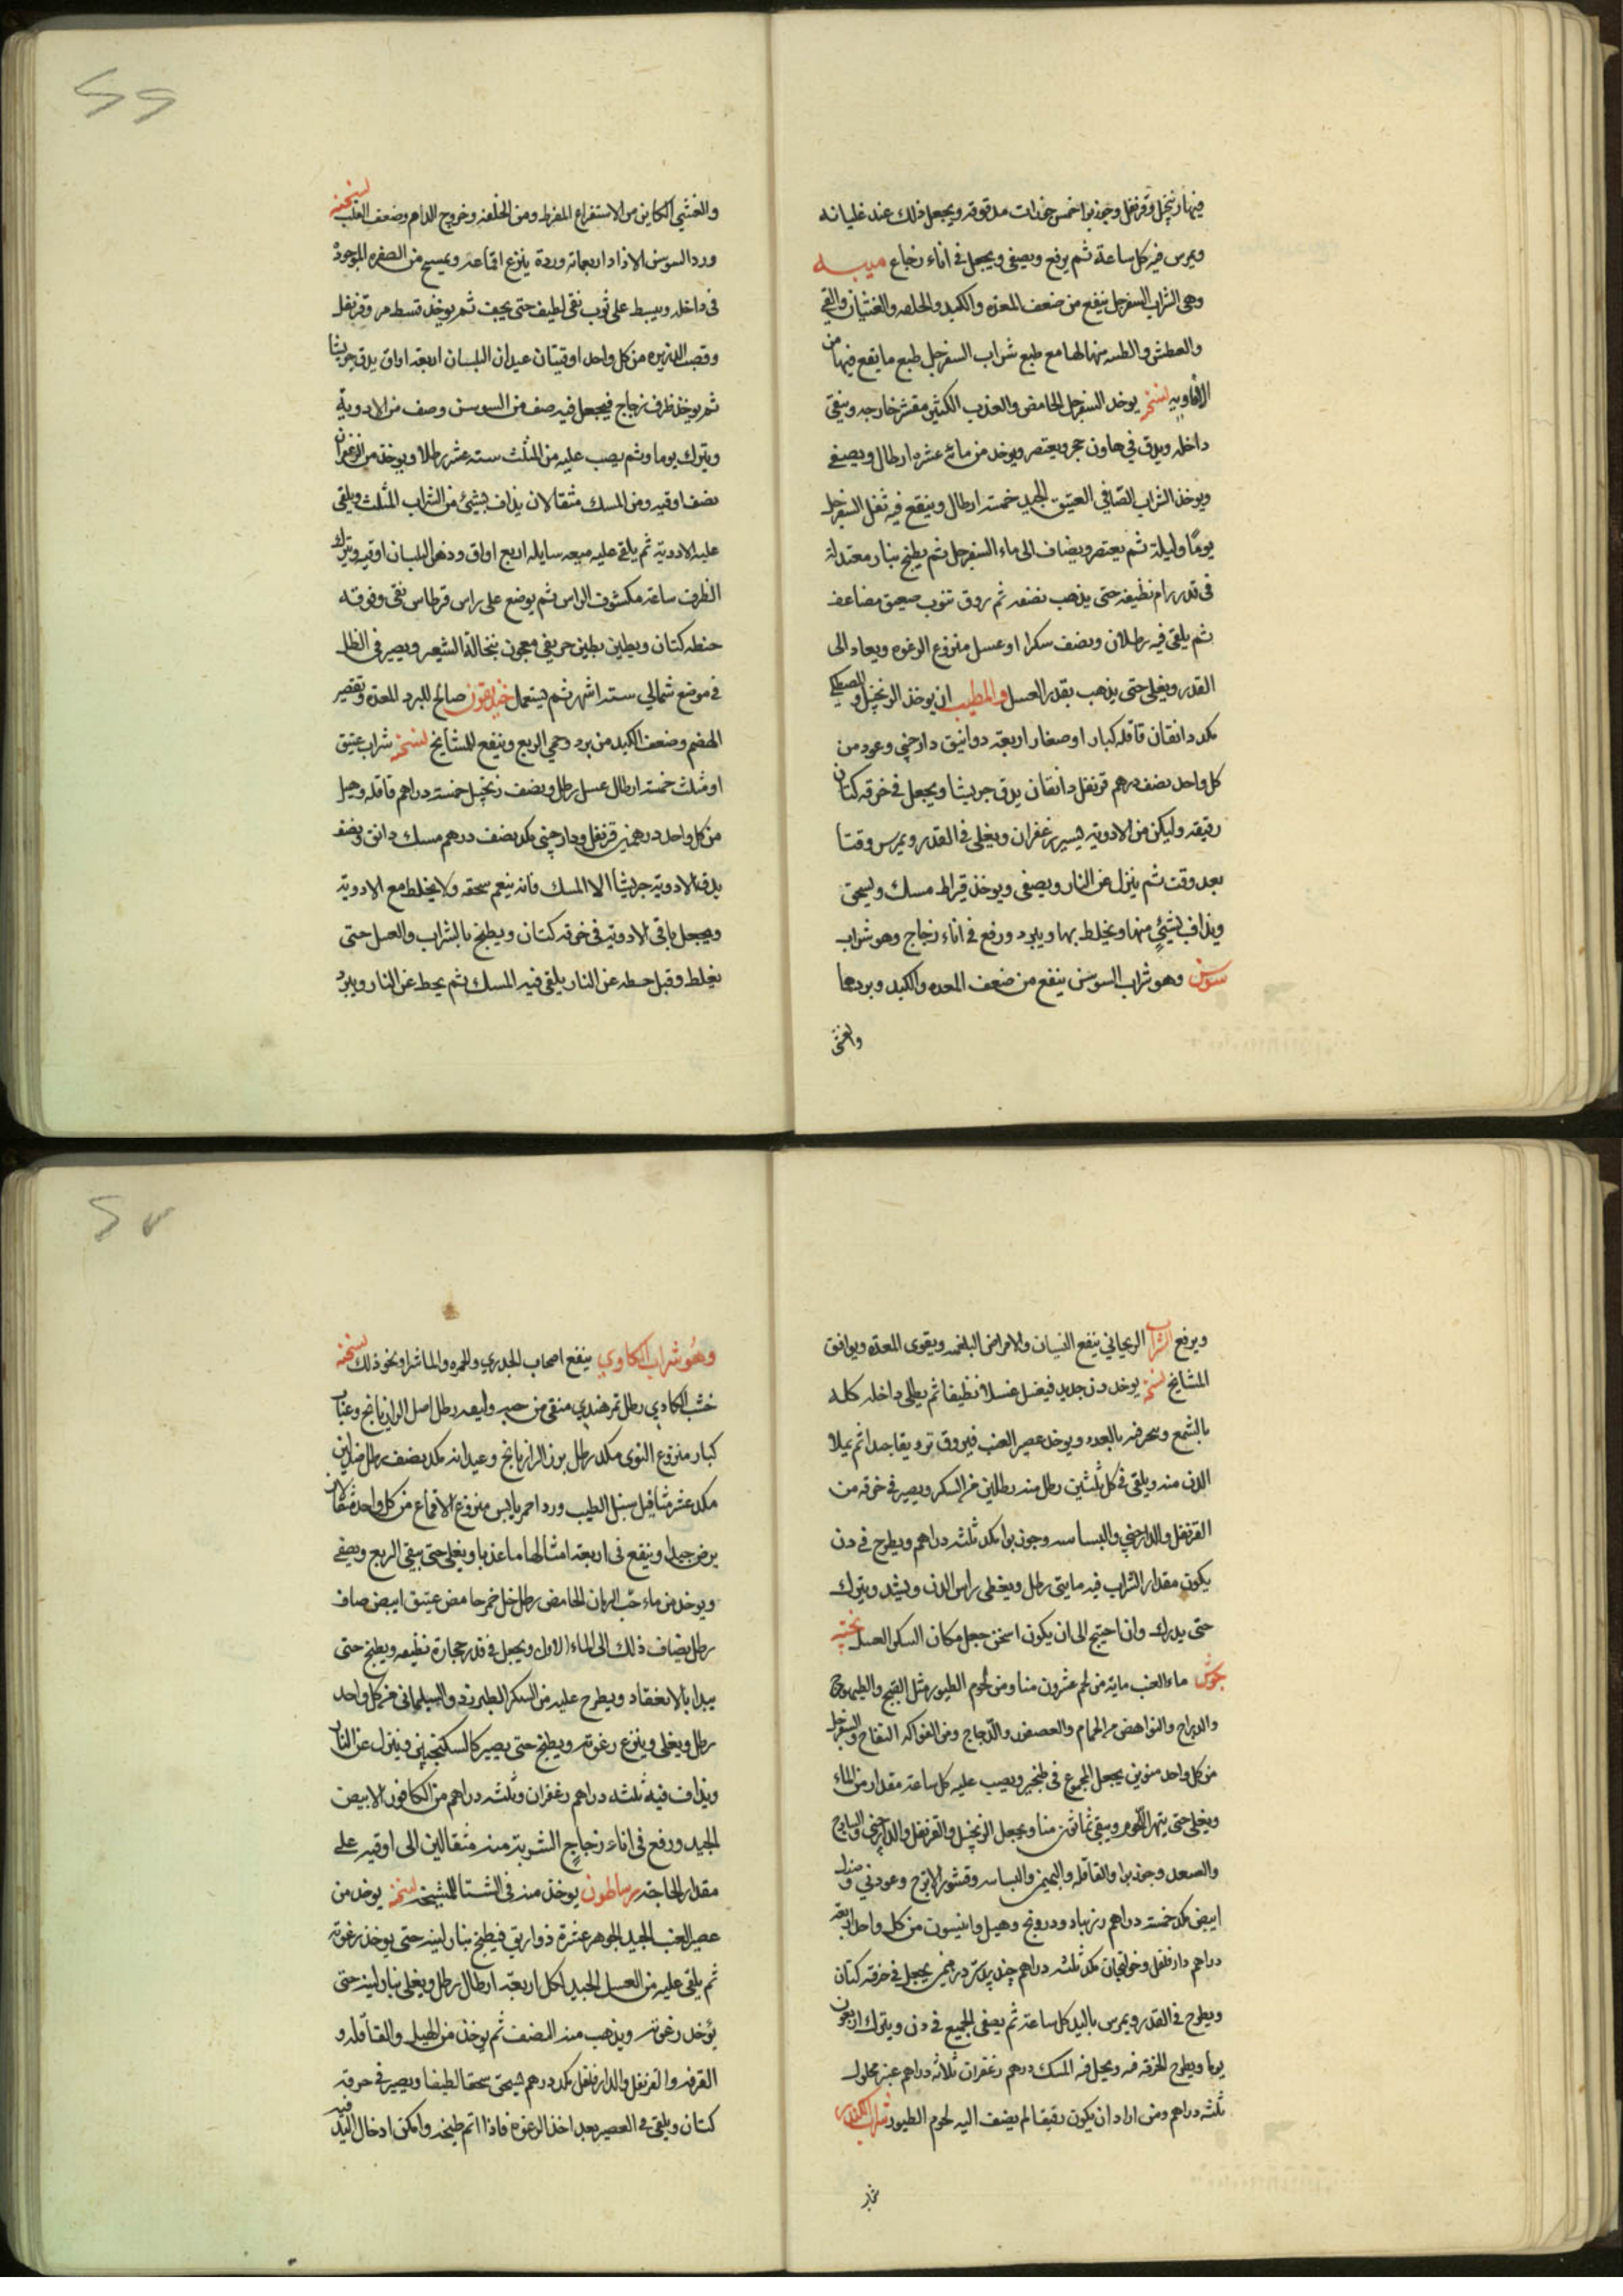 فيها زنجبيل وقرنفل وجوزبوا خمس خذات مدقوقه ويجعل ذلك عند غليانه
ويمرس فيه كل ساعة ثم يرفع ويصفى ويجعل فى اناء زجاج ميبه
وهى الشراب السفرجل ينفع من ضعف المعده والكبد والخلفه والغثيان والقي
والعطش صنعتها مع طبع شراب السفرجل طبع ما يقع فيها من
الافاويه نسخته يوخذ السفرجل الحامض والعذب الكثير مقشر خارجه وينقى
داخله ويدق في هاون حجر ويعتصر ويوخذ من مائه عشره ارطال ويصفى
ويوخذ الشراب الصافي العتيق الجيد خمسة ارطال وينقع فيه ثفل السفرجل
يومًا وليلة ثم يعتصر ويضاف الى ماء السفرجل ثم يطبخ بنار معتدلة
فى قدر برام نظيفه حتى يذهب نصفه ثم يروق بثوب صفيق مضاعف
ثم يلقى فيه رطلان ونصف سكرا او عسل منزوع الرغوه ويعاد الى
القدر ويغلى حتى يذهب بقدر العسل والمطيب ان يوخذ الزنجبيل والمصطكى
مكد دانقان قاقله كبار او صغار اربعة دوانيق دارچني وعود من
كل واحد نصف درهم قرنفل دانقان يدق جريشا ويجعل فى خرقه كتان
رقيقه وليكن من الادويه يسير زعفران ويغلى فى القدر ويمرس وقتا
بعد وقت ثم ينزل عن النار ويصفى ويوخذ قيراط مسك ويسحق
ويذاف بشئ منها ويخلط بها ويبرد ورفع فى اناء زجاج وهو شراب
سوسن وهو شراب السوسن ينفع من ضعف المعده والكبد وبردها
والغشى
والغشي الكاين من الاستفراغ المفرط ومن الخلفه وخروج الدم وضعف القلب نسخته
ورد السوسن الازاد اربعمائه وردة ينزع اقماعه ويمسح من الصفره الموجودة
فى داخله ويبسط على ثوب نقى لطيف حتى يجف ثم يوخذ قسط مر وقرنفل
وقصب الذريره من كل واحد اوقيتان عيدان البلسان اربعة اواق يدق جريشا
ثم يوخذ ظرف زجاج فيجعل فيه صف من السوسن وصف من الادوية
ويترك يوما وثم يصب عليه من المثلث ستة عشر رطلا ويوخذ من الزعفران
نصف اوقيه ومن المسك مثقالان يذاف بشئ من الشراب المثلث ويلقى
عليه الادوية ثم يلقى عليه ميعه سايله اربع اواق ودهن البلسان اوقيه ويترك
الظرف ساعة مكشوف الراس ثم يوضع على راس قرطاس نقى وفوقه
خرقه كتان ويطين بطين حر نقي ومعجون بنخالة الشعير ويصير فى الظل
فى موضع شمالي ستة اشهر ثم يستعمل خنديقون صالح لبرد المعدة وتقصير
الهضم وضعف الكبد من برد وحمي الربع وينفع للمشايخ نسخته شراب عتيق
او مثلث خمسة ارطال عسل رطل ونصف زنجبيل خمسة دراهم قاقله وهيل
من كل واحد درهمين قرنفل ودارچني مكد نصف درهم مسك دانق ونصف
يدق الادوية جريشا الا المسك فانه ينعم سحقه ولا يخلط مع الادوية
ويجعل باقى الادوية فى خرقه كتان ويطبخ بالشراب والعسل حتى
يغلظ وقبل حطه عن النار يلقى فيه المسك ثم يحط عن النار ويبرد
ويرفع الشراب الريحاني ينفع النسيان والامراض البلغميه ويقوى المعدة ويوافق
المشايخ نسخته يوخذ دن جديد فيغسل غسلا نظيفا ثم يطلى داخله كله
بالشمع ويوخذ عصير العنب فيروق ترويقا جيدا ثم يملا
الدن منه ويلقى فى كل ثلثين رطل منه رطلين من السكر ويصير فى خرقه من
القرنفل والدارچني والبسباسه وجوزبوا مكد ثلثه دراهم ويطرح فى دن
يكون مقدار الشراب فيه مايتى رطل ويغطى راس الدن ويشد ويترك
حتى يدرك وان احتيج الى ان يكون اسخن جعل مكان السكر العسل پخته
جوش ماء العنب مايه من لحم عشرون منا ومن لحوم الطيور مثل القبج والطيهوج
والدراج والنواهض من الحمام والعصفور والدجاج ومن الفواكه التفاح والسفرجل
من كل واحد منوين يجعل المجموع فى طنجير ويصب عليه كل ساعة مقدار من الماء
ويغلى حتى يتهرا اللحوم ويبقى ثمانون منا ويجعل الزنجبيل والقرنفل والدارچيني والساذج
والسعد وجوزبوا والقاقله والبهمن والبسباسه وقشور الاترج وعود ني وصندل
ابيض مكد خمسة دراهم زرنباد ودرونج وهيل وانيسون من كل واحد اربعة
دراهم دارفلفل وخولنجان مكد ثلثه دراهم جندبيدستر درهمين يجعل فى خرقه كتان
ويطرح فى القدر ويمرس باليد كل ساعة ثم يصفى الجميع فى دن ويترك اربعون
يوما ويطرح الخرقه فيه ويحل فيه المسك درهم زعفران ثلاثه دراهم عنبر محلول
ثلثه دراهم ومن اراد ان يكون رقيقا لم يضف اليه لحوم الطيور شراب الكندر
وهُو شراب الكاوي ينفع اصحاب الجدري والحمره والماشرا ونحو ذلك نسخته
خشب الكادي رطل تمر هندي منقى من حبه وليفه رطل اصل الرازيانج وعناب
كبار منزوع النوى مكد رطل بزر الرازيانج وعيدانه مكد نصف رطل صندلين
مكد عشر مثاقيل سنبل الطيب ورد احمر يابس منزوع الاقماع من كل واحد مثقال
يرض جيدا وينقع فى اربعة امثالها ماء عذبا ويغلى حتى يبقى الربع ويصفى
ويوخذ من ماء حب الرمان الحامض رطل خل خمر حامض عتيق ابيض صاف
رطل يضاف ذلك الى الماء الاول ويجعل فى قدر حجارة نظيفه ويطبخ حتى
يبدا بالانعقاد ويطرح عليه من السكر الطبرزد والسليماني من كل واحد
رطل ويغلى وينزع رغوته ويطبخ حتى يصير كالسكنجبين وينزل عن النار
ويذاف فيه ثلثه دراهم زعفران وثلثه دراهم من الكافور الابيض
الجيد ورفع فى اناء زجاج الشربة منه مثقالين الى اوقيه على
مقدار الحاجة رساطون يوخذ منه فى الشتا للشيخ نسخته يوخذ من
عصير العنب الجيد الجوهر عشرة ذواريق فيطبخ بنار لينه حتى يوخذ رغوته
ثم يلقى عليه من العسل الجيد لكل اربعة ارطال رطل ويغلى بنار لينه حتى
يؤخذ رغوته ويذهب منه النصف ثم يوخذ من الهيل والقاقله و
القرفه والقرنفل والدارفلفل مكد درهم فيسحق سحقا لطيفا ويصير فى خرقه
كتان ويلقى فى العصير بعد اخذ الرغوة فاذا اتم طبخه وامكن ادخال اليد فيه